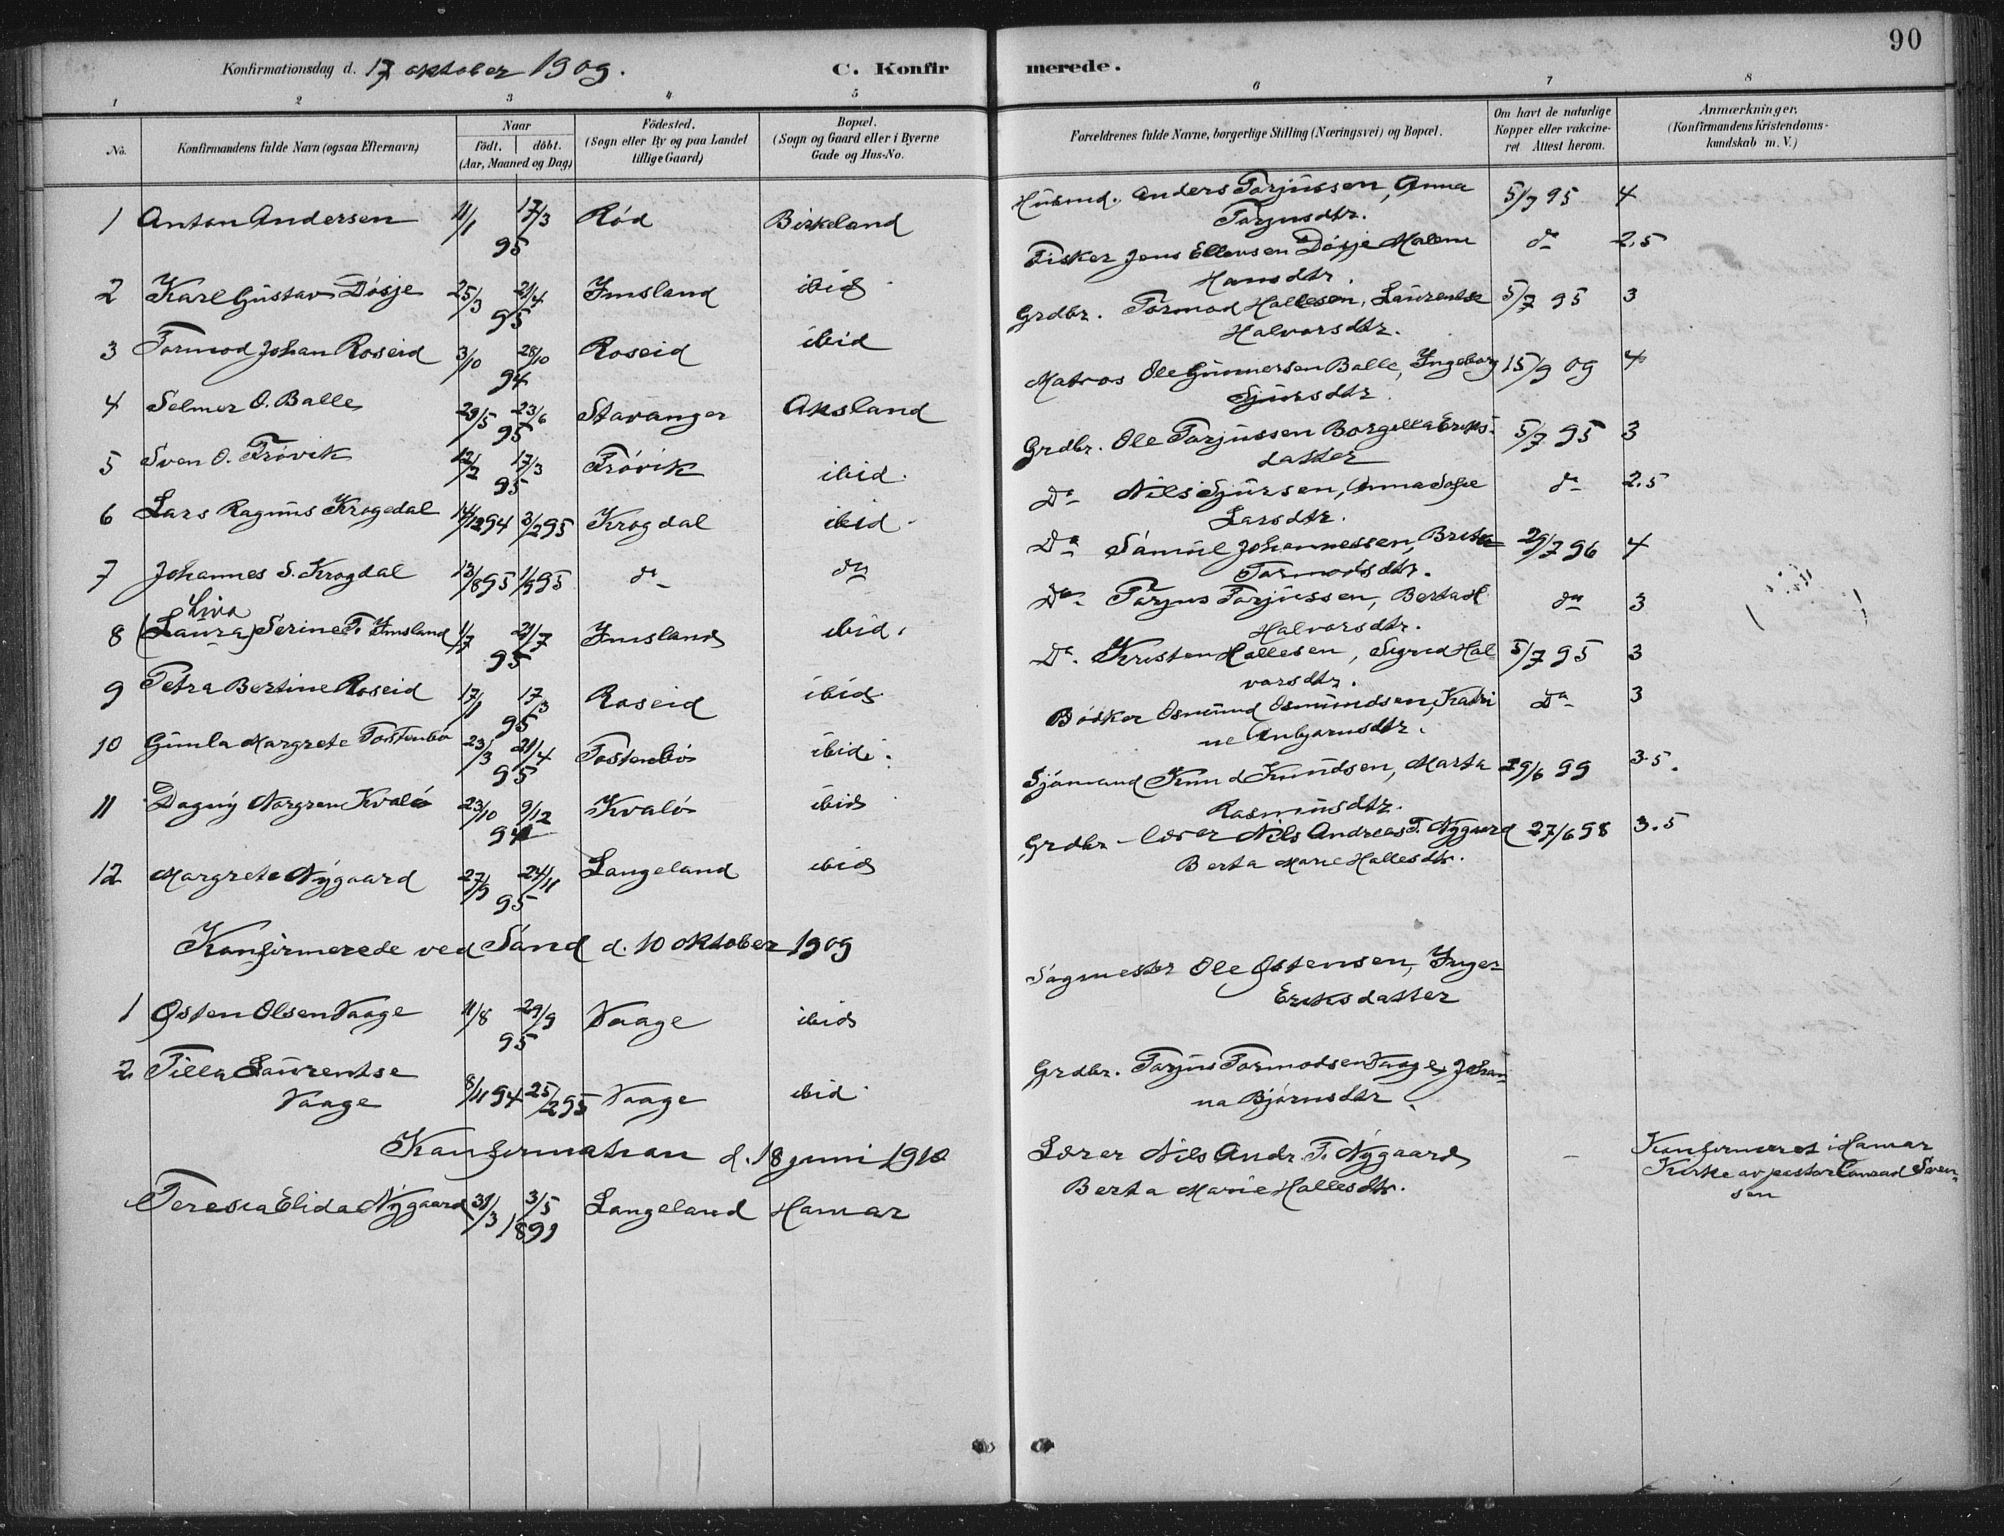 90
Konfirmationsdag d. 17 oktober 1909. C. Konfirmerede.
1 2 3 4 5 6 7 8
No. Konfirmandens fulde Navn (ogsaa Efternavn)
Naar født. døbt. (Aar, Maaned og Dag)
Fødested. (Sogn eller By og paa Landet tillige Gaard)
Bopæl. (Sogn og Gaard eller i Byerne Gade og Hus-No.
Forældrenes fulde Navne, borgerlige Stilling (Næringsvei) og Bopæl.
Om havt de naturlige Kopper eller vakcineret. Attest herom.
Anmærkninger. (Konfirmandens Kristendomskundskab m. V.)
1 Anton Andersen 11/1 17/3 95 Rød Birkeland Husmd. Anders Torjussen, Anna Torjusdtr. 5/7 95 4
2 Karl Gustav Døsje 25/3 21/4 95 Imsland ibid Fisker Jens Ellevsen Døsje Malene Hansdtr. do 2.5
3 Tormod Johan Roseid 3/10 28/10 94 Roseid ibid Grdbr. Tormod Hallesen, Laurentse Halvorsdtr. 5/7 95 3
4 Selmer O. Balle 29/5 23/6 95 Stavanger Aksland Matros Ole Gunnersen Balle, Ingeborg Sjursdtr. 15/9 09 4
5 Sven O. Frøvik 12/2 17/3 95 Frøvik ibid. Grdbr. Ole Torjussen Borgilla Eriksdatter 5/7 95 3
6 Lars Ragnus Krogedal 14/12 94 3/2 95 Krogdal ibid. Do Nils Sjursen, Anna Sofie Larsdtr. do 2.5
7 Johannes S. Krogdal 13/8 95 1/9 95 do do Do Samuel Johannessen, Brita Tormodsdtr. 29/7 96 4
Liva
8 (Laura) Serine T. Imsland 1/7 21/7 95 Imsland ibid. Do Torjus Torjussen, Berta H. Halvorsdtr. do 3
9 Petra Bertine Roseid 17/1 17/3 95 Roseid ibid. Do. Kristen Hallesen, Sigrid Halvorsdtr. 5/7 95 3
10 Gunla Margrete Tostenbø 23/3 21/4 95 Tostenbø ibid. Bøsker Osmund Osmundsen, Katrine Anbjørnsdtr. Do 3
11 Dagny Norgren Kvalø 23/10 9/12 94 Kvalø ibid Sjømand Knud Knudsen, Marta Rasmusdtr. 29/6 99 3.5.
12 Margrete Nygaard 27/9 24/11 95 Langeland ibid Grdbr - lærer Nils Andreas T. Nygaard Berta Marie Hallesdtr. 27/6 98 3.5
Konfirmerede ved Sand d. 10 oktober 1909
1 Østen Olsen Vaage 11/8 29/9 95 Vaage ibid Sagmester Ole Østensen, Inger Eriksdatter
2 Tilla Laurentse Vaage 8/11 94 25/2 95 Vaage ibid Grdbr. Torjus Tormodsen Vaage, Johanna Bjørnsdtr.
Konfirmation d. 18 juni 1910
Teresia Elida Nygaard 31/3 3/5 1891 Langeland Hamar Lærer Nils Andr. T. Nygaard Berta Marie Hallesdtr. - Konfirmeret i Hamar Kirke av pastor Conrad Svensen